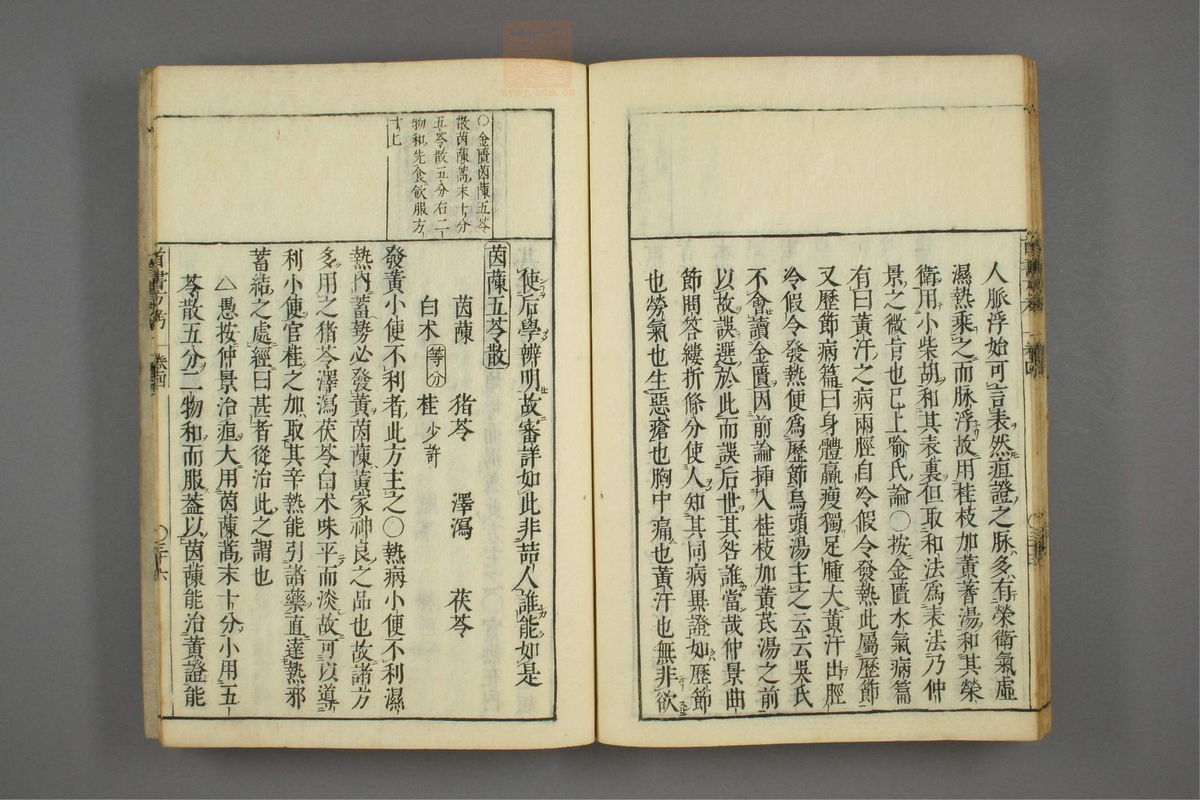 人脈浮始可言表然疸證之脈多有榮衛氣虛
濕熱乘之而脈浮故用桂枝加黃蓍湯和其榮
衛用小柴胡和其表裏但取和法爲表法乃仲
景之微旨也已上喻氏論〇按金匱水氣病篇
有曰黃汗之病兩脛自冷假令發熱此屬歷節
又歷節病篇曰身體羸瘦獨足腫大黃汗出脛
冷假令發熱便爲歷節烏頭湯主之云云吳氏
不會讀金匱因前論挿入桂枝加黃芪湯之前
以故誤選於此而誤后世其咎誰當哉仲景曲
節問答縷折條分使人知其同病異證如歷節
也勞氣也生惡瘡也胸中痛也黃汗也無非欲
使后學辨明故審詳如此非喆人誰能如是
〇金匱茵蔯五苓
散茵蔯蒿末十分
五苓散五分右二
物和先食飲服方
寸匕
茵蔯五苓散
茵蔯 猪苓 澤瀉 茯苓
白术等分 桂少許
發黃小便不利者此方主之〇熱病小便不利濕
熱內蓄勢必發黃茵蔯黃家神良之品也故諸方
多用之猪苓澤瀉茯苓白术味平而淡故可以導
利小便官桂之加取其辛熱能引諸藥直達熱邪
蓄結之處經曰甚者從治此之謂也
△愚按仲景治疸大用茵蔯蒿末十分小用五
苓散五分二物和而服葢以茵蔯能治黃證能
首書方考 卷四 〇三十六